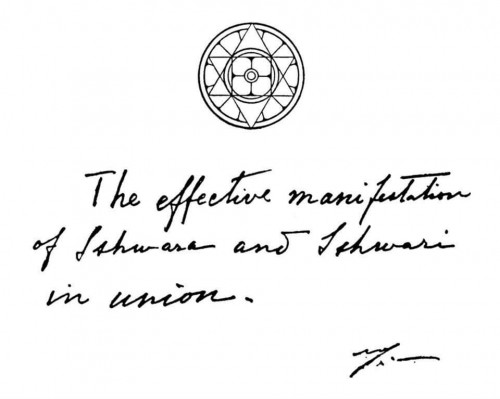 The effective manifestation
of Ishwara and Ishwari
in union.